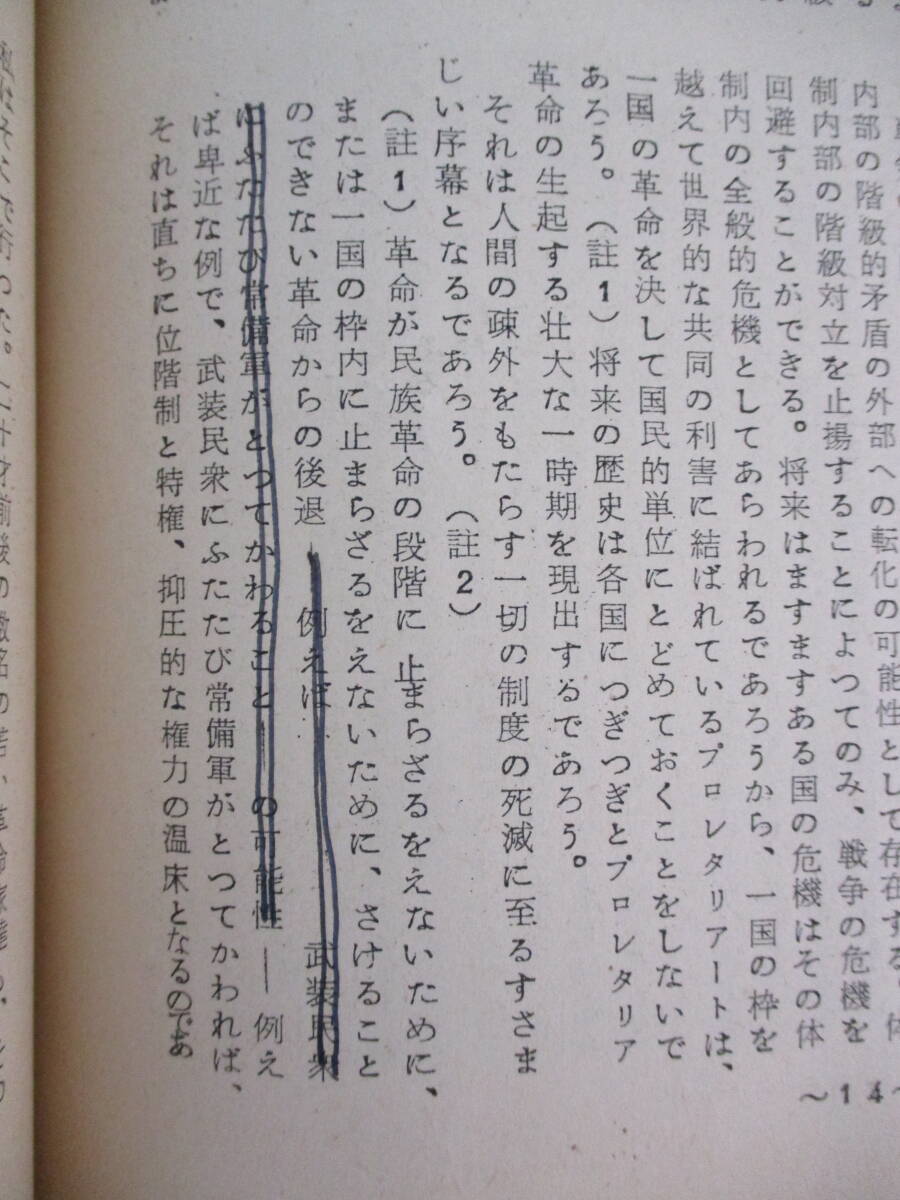 内部の階級的矛盾の外部への転化の可能性として存在する。体
制内部の階級対立を止揚することによつてのみ、戦争の危機を
回避することができる。将来はますますある国の危機はその体
制内の全般的危機としてあらわれるであろうから、一国の枠を
越えて世界的な共同の利害に結ばれているプロレタリアートは、
一国の革命を決して国民的単位にとどめておくことをしないで
あろう。（註1）将来の歴史は各国につぎつぎとプロレタリア
革命の生起する壮大な一時期を現出するであろう。
それは人間の疎外をもたらす一切の制度の死滅に至るすさま
じい序幕となるであろう。（註2）
（註1）革命が民族革命の段階に止まらざるをえないために、
または一国の枠内に止まらざるをえないために、さけること
のできない革命からの後退―例えば 武装民衆
にふたたび常備軍がとつてかわること―の可能性―例え
ば卑近な例で、武装民衆にふたたび常備軍がとつてかわれば、
それは直ちに位階制と特権、抑圧的な権力の温床となるのであ
~14~